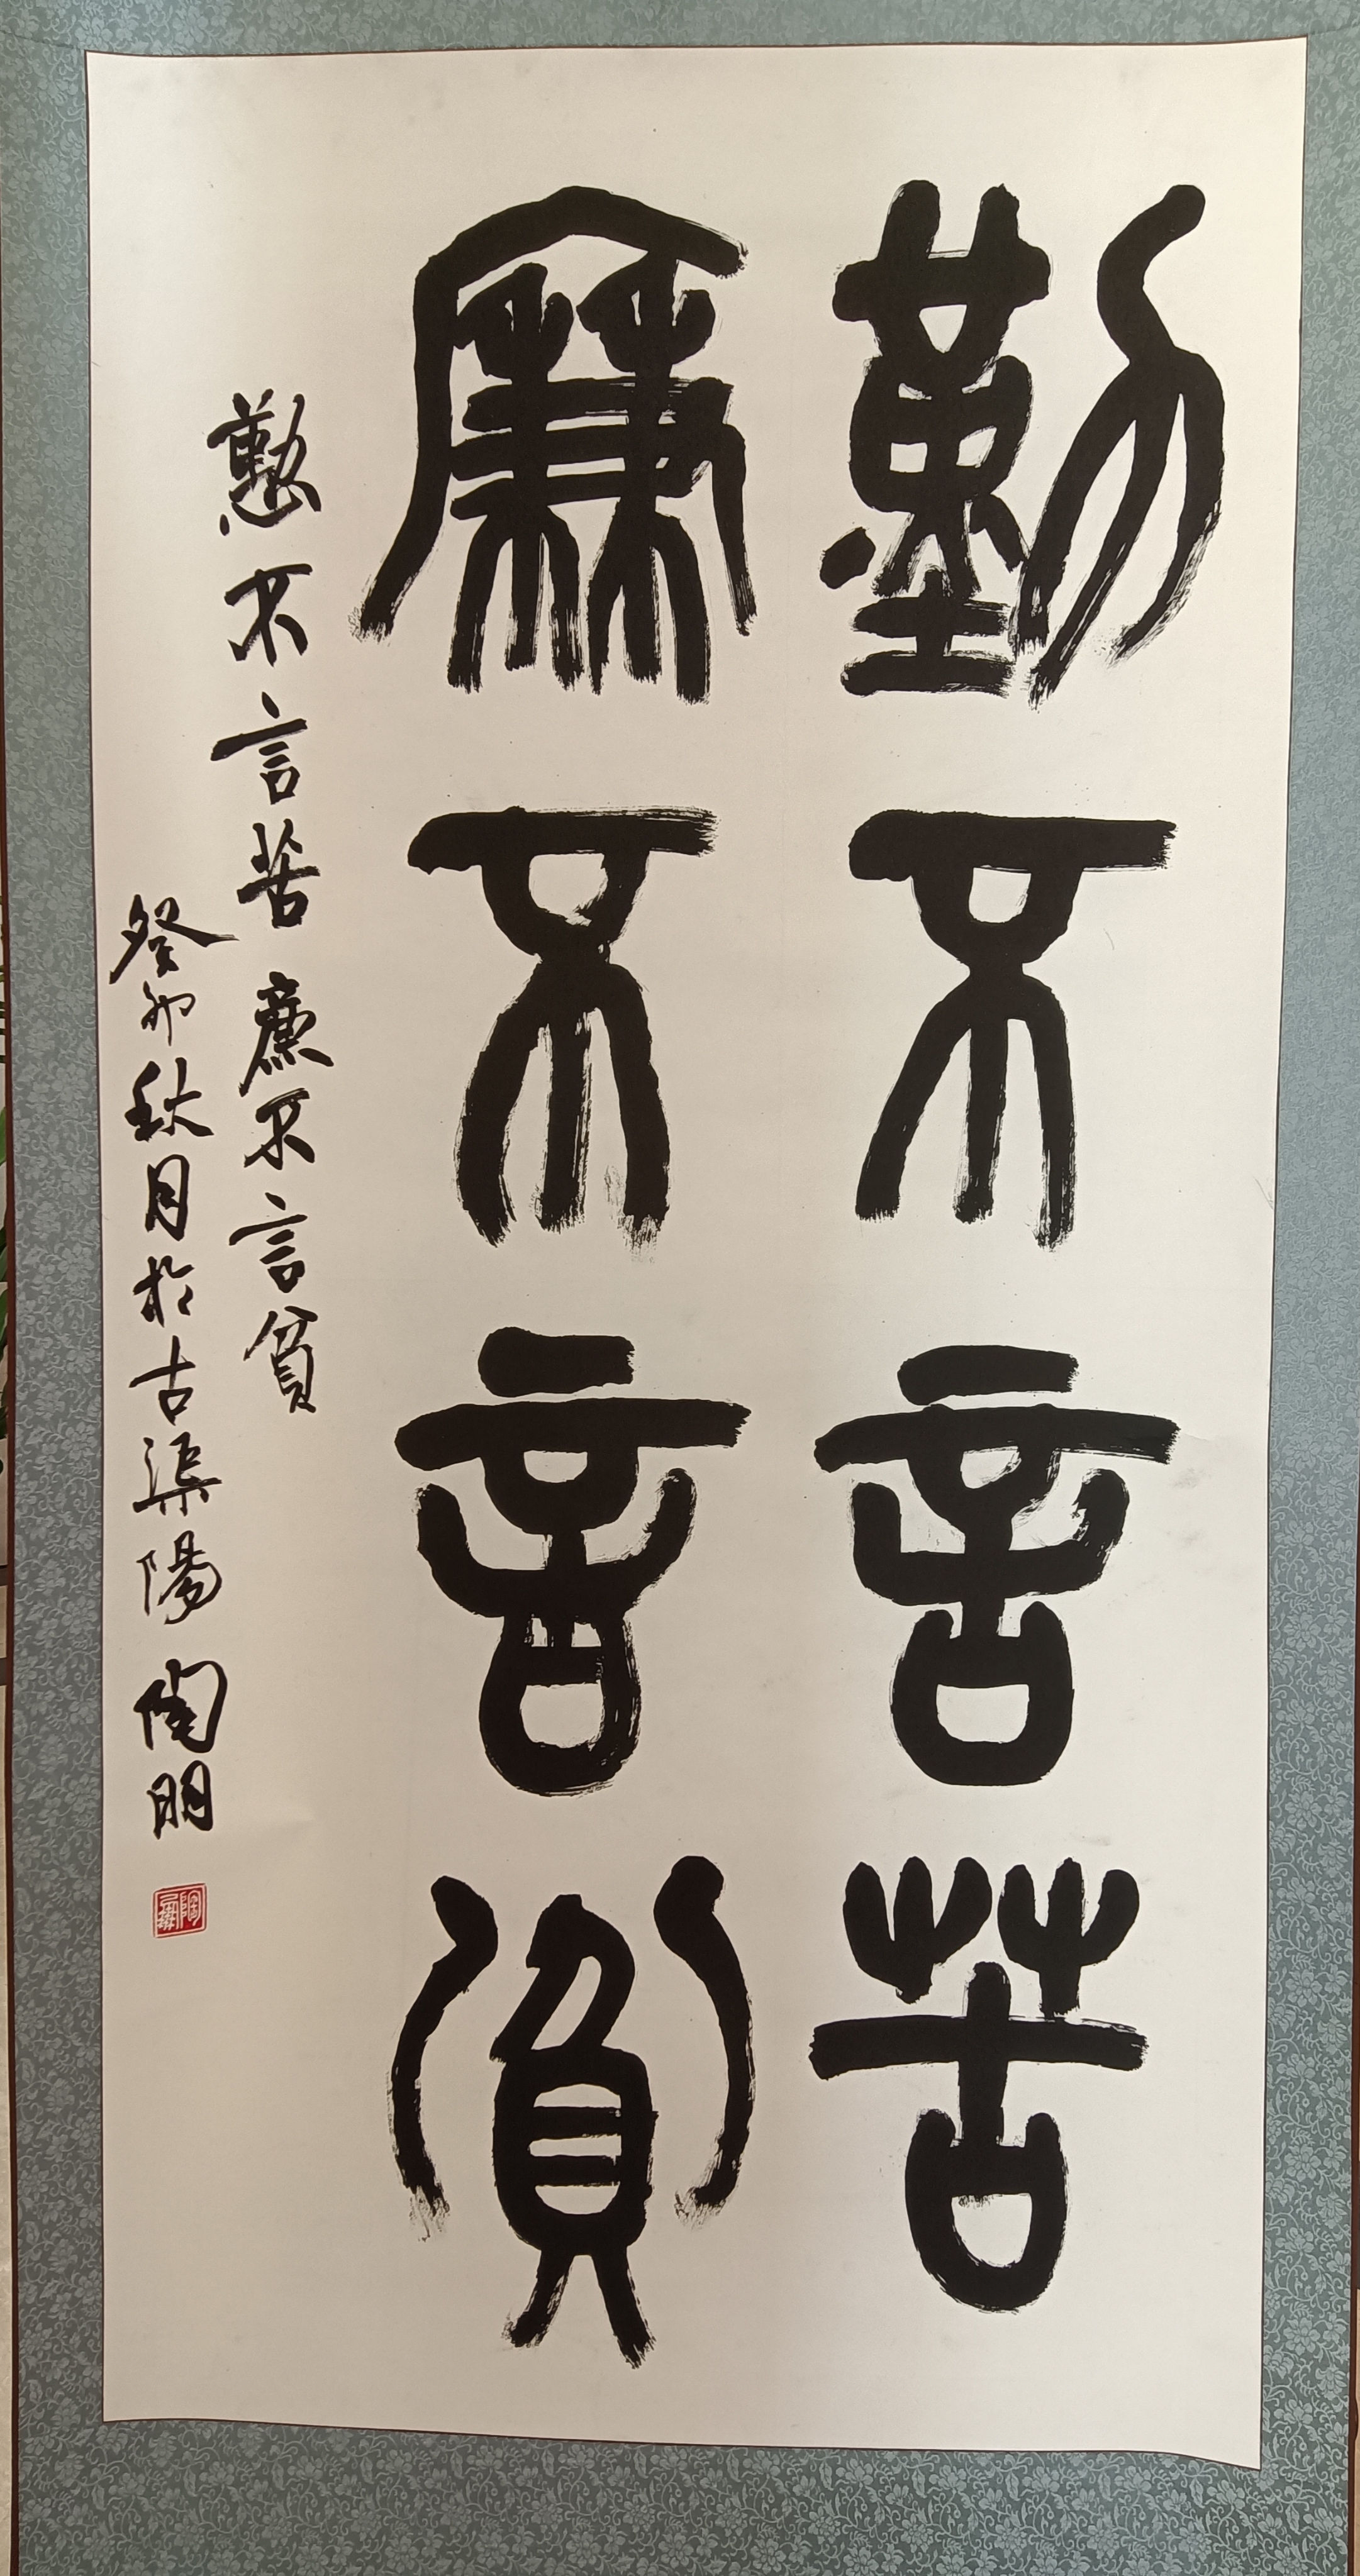 勤不言苦
廉不言貧
懃不言苦廉不言貧
癸卯秋月於古渠陽陶明